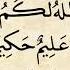 للَّهُ لَكُمُ
عَلِيمٌ حَكِيمٌ